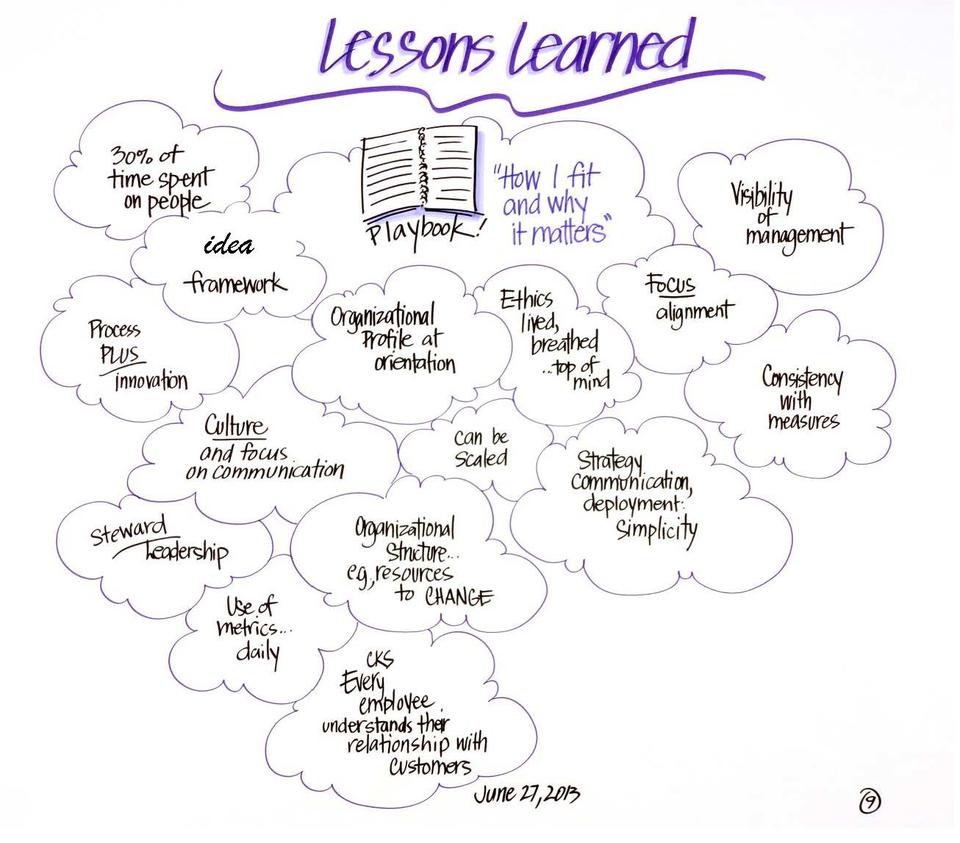 Lessons Learned
30% of
time spent
on people
Playbook!
"How I fit
and why
it matters"
Visibility
of
management
idea
framework
Focus
alignment
Process
PLUS
innovation
Organizational
Profile at
orientation
Ethics
lived,
breathed
...top of
mind
Consistency
with
measures
Culture
and focus
on communication
can be
scaled
Strategy
communication,
deployment:
Simplicity
Steward
Leadership
Organizational
Structure...
e.g., resources
to CHANGE
Use of
metrics...
daily
CKS
Every
employee
understands their
relationship with
customers
June 27, 2013
9